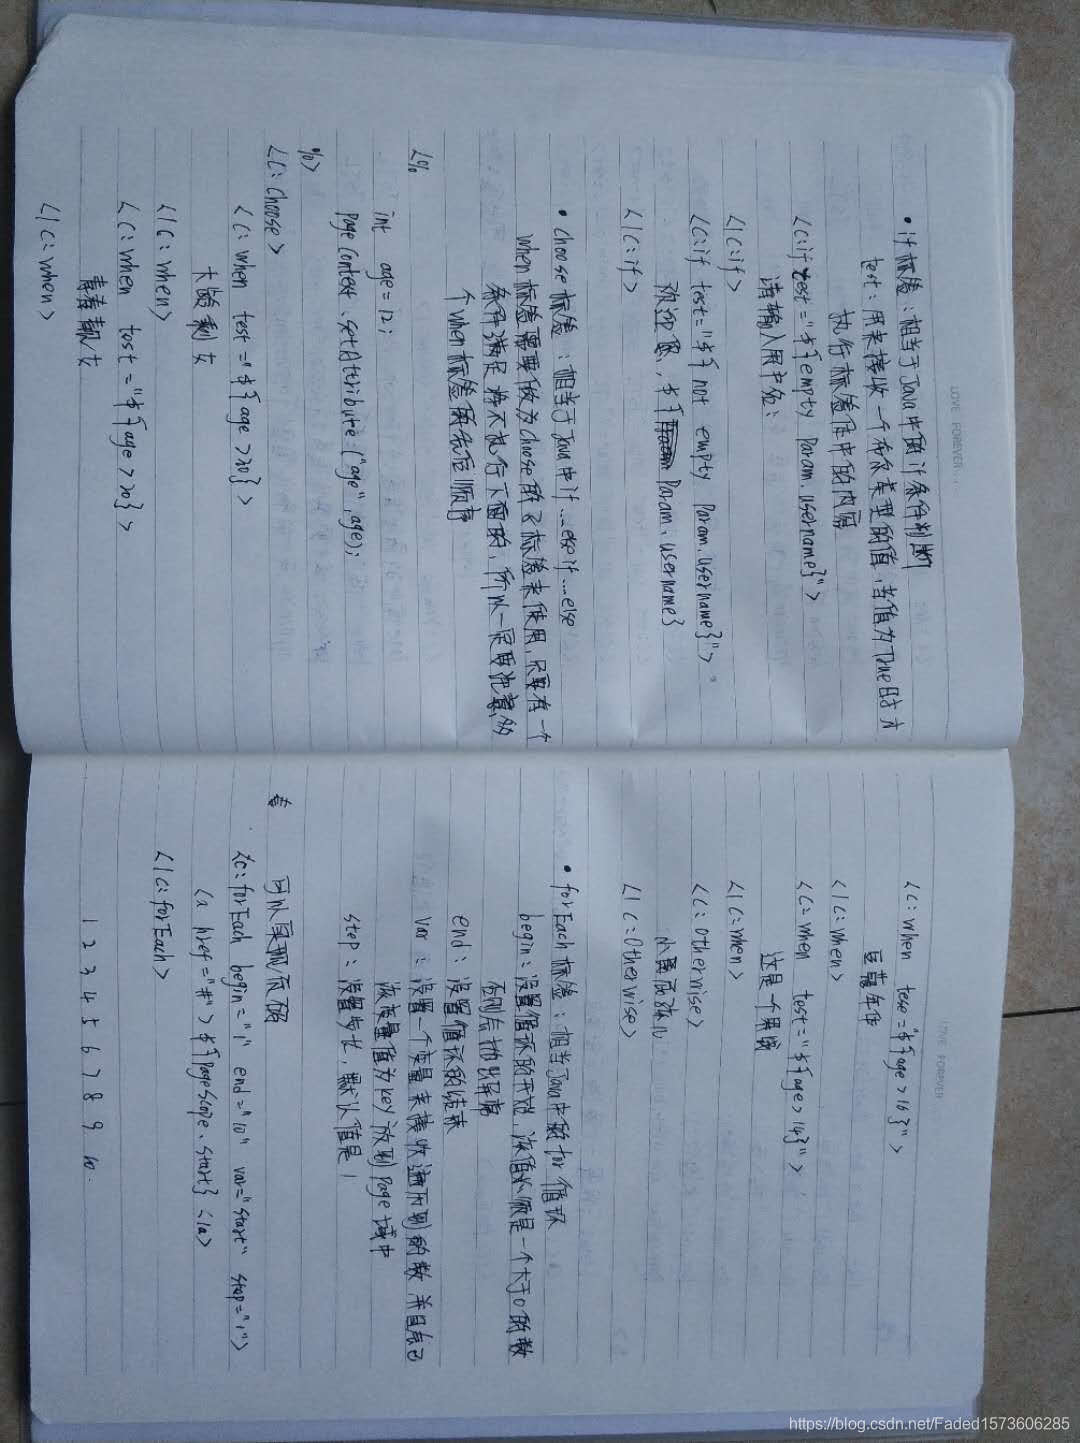 LOVE FOREVER
• if标签：相当于Java中的if条件判断
test：用来接收一个布尔类型的值，当值为True时才
执行标签体中的内容
<C:if test="${empty Param.username}">
请输入用户名：
<|C:if>
<C:if test="${not empty Param.username}">
欢迎您，${Param.username}
<|C:if>
• choose标签：相当于Java中if...else if...else
when标签需要做为choose的子标签来使用，只要有一个
条件满足 将不执行下面的，所以一定要注意
个when标签的先后顺序
<%
int age=12;
pageContext.setAttribute("age",age);
%>
<C:choose>
<C:when test="${age>30}>
大龄剩女
<|C:when>
<C:when test="${age>20}>
青春靓女
<|C:when>
LOVE FOREVER
<C:when tese="${age>16}">
豆蔻年华
<|C:when>
<C:when test="${age>14}">
这是一个
<|C:when>
<C:otherwise>
小
<|C:Otherwise>
• forEach标签：相当Java中的for循环
begin：设置循环的开始，该值必须是一个大于0的数
否则会抛出异常
end：设置循环的结束
var：设置一个变量来接收遍历到的数 并且会已
该变量值为key放到page域中
step：设置步长，默认值是1
可以实现页码
<c:forEach begin="1" end="10" var="start" step="1">
<a href="#">${PageScope.start}<|a>
<|C:forEach>
1 2 3 4 5 6 7 8 9 10.
https://blog.csdn.net/Faded1573606285